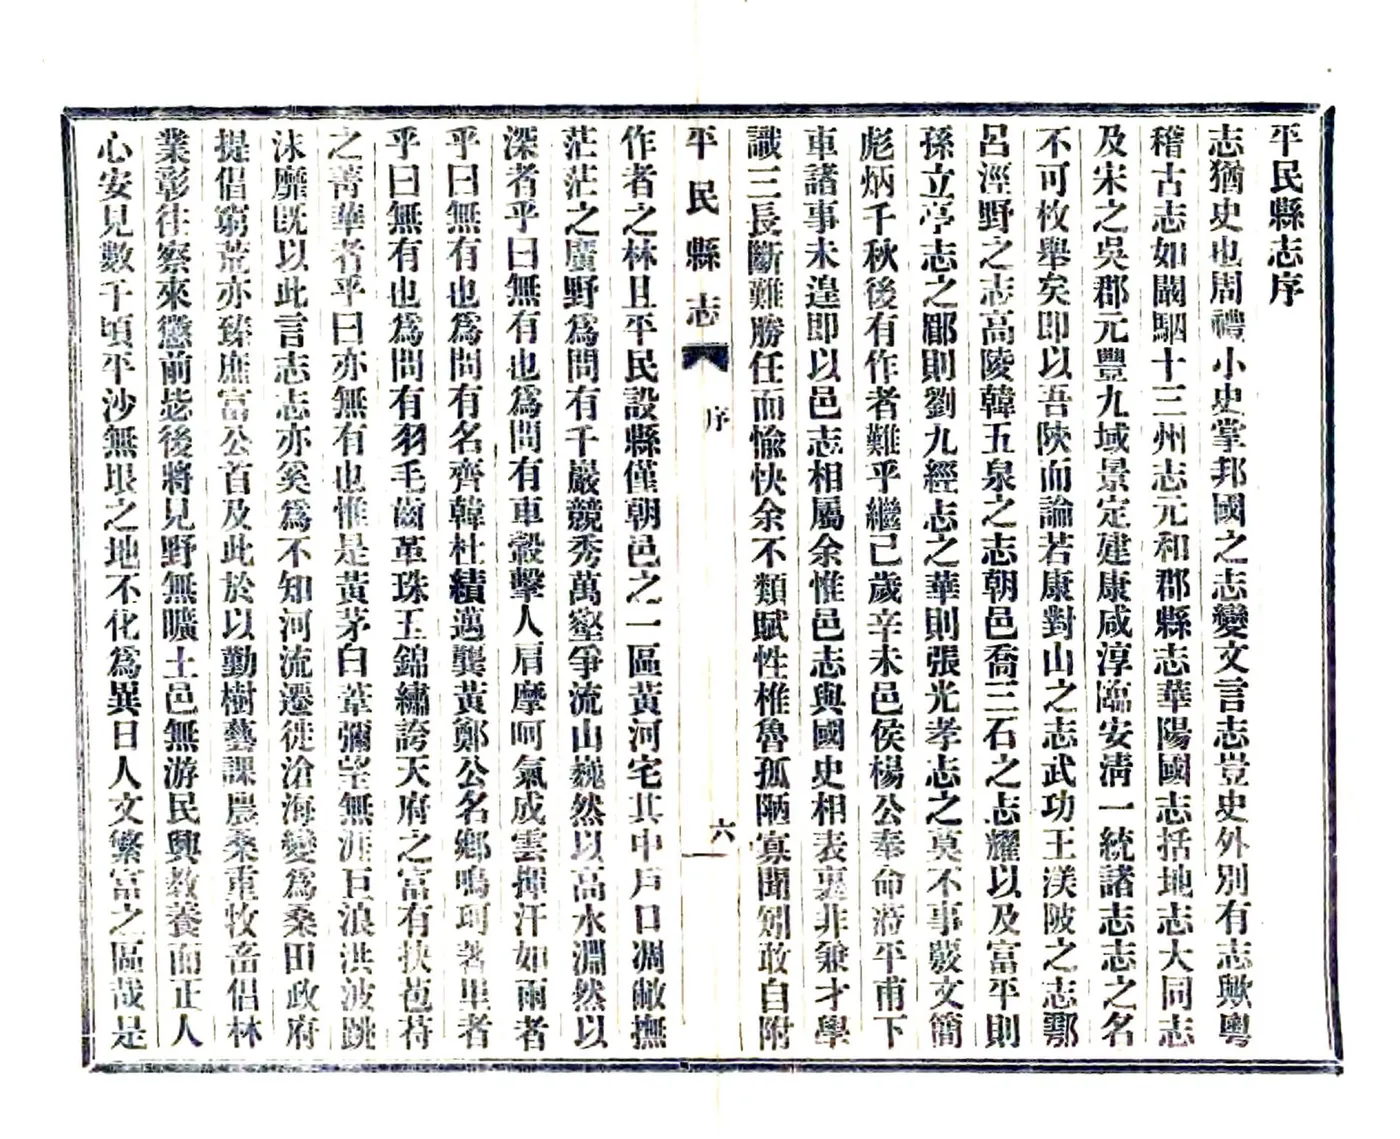 平民縣志序
志猶史也周禮小史掌邦國之志變文言志豈史外別有志歟粵
稽古志如闞駰十三州志元和郡縣志華陽國志括地志大同志
及宋之吳郡元豐九域景定建康咸淳臨安清一統諸志志之名
不可枚舉矣即以吾陝而論若康對山之志武功王渼陂之志鄠
呂涇野之志高陵韓五泉之志朝邑喬三石之志耀以及富平則
孫立亭志之郿則劉九經志之華則張光孝志之莫不事覈文簡
彪炳千秋後有作者難乎繼已歲辛未邑侯楊公奉命涖平甫下
車諸事未遑即以邑志相屬余惟邑志與國史相表裏非兼才學
識三長斷難勝任而愉快余不類賦性椎魯孤陋寡聞矧敢自附
平民縣志 序 六
作者之林且平民設縣僅朝邑之一區黃河宅其中戶口凋敝撫
茫茫之廣野為問有千巖競秀萬壑爭流山巍然以高水淵然以
深者乎曰無有也為問有車轂擊人肩摩呵氣成雲揮汗如雨者
乎曰無有也為問有名齊韓杜績邁龔黃鄭公名鄉鳴珂著里者
乎曰無有也為問有羽毛齒革珠玉錦繡誇天府之富有挾苞苻
之菁華者乎曰亦無有也惟是黃茅白葦彌望無涯巨浪洪波跳
沫靡既以此言志志亦奚為不知河流遷徙滄海變為桑田政府
提倡窮荒亦臻庶富公首及此於以勤樹藝課農桑重牧畜倡林
業彰往察來懲前毖後將見野無曠土邑無游民興教養而正人
心安見數千頃平沙無垠之地不化為異日人文繁富之區哉是